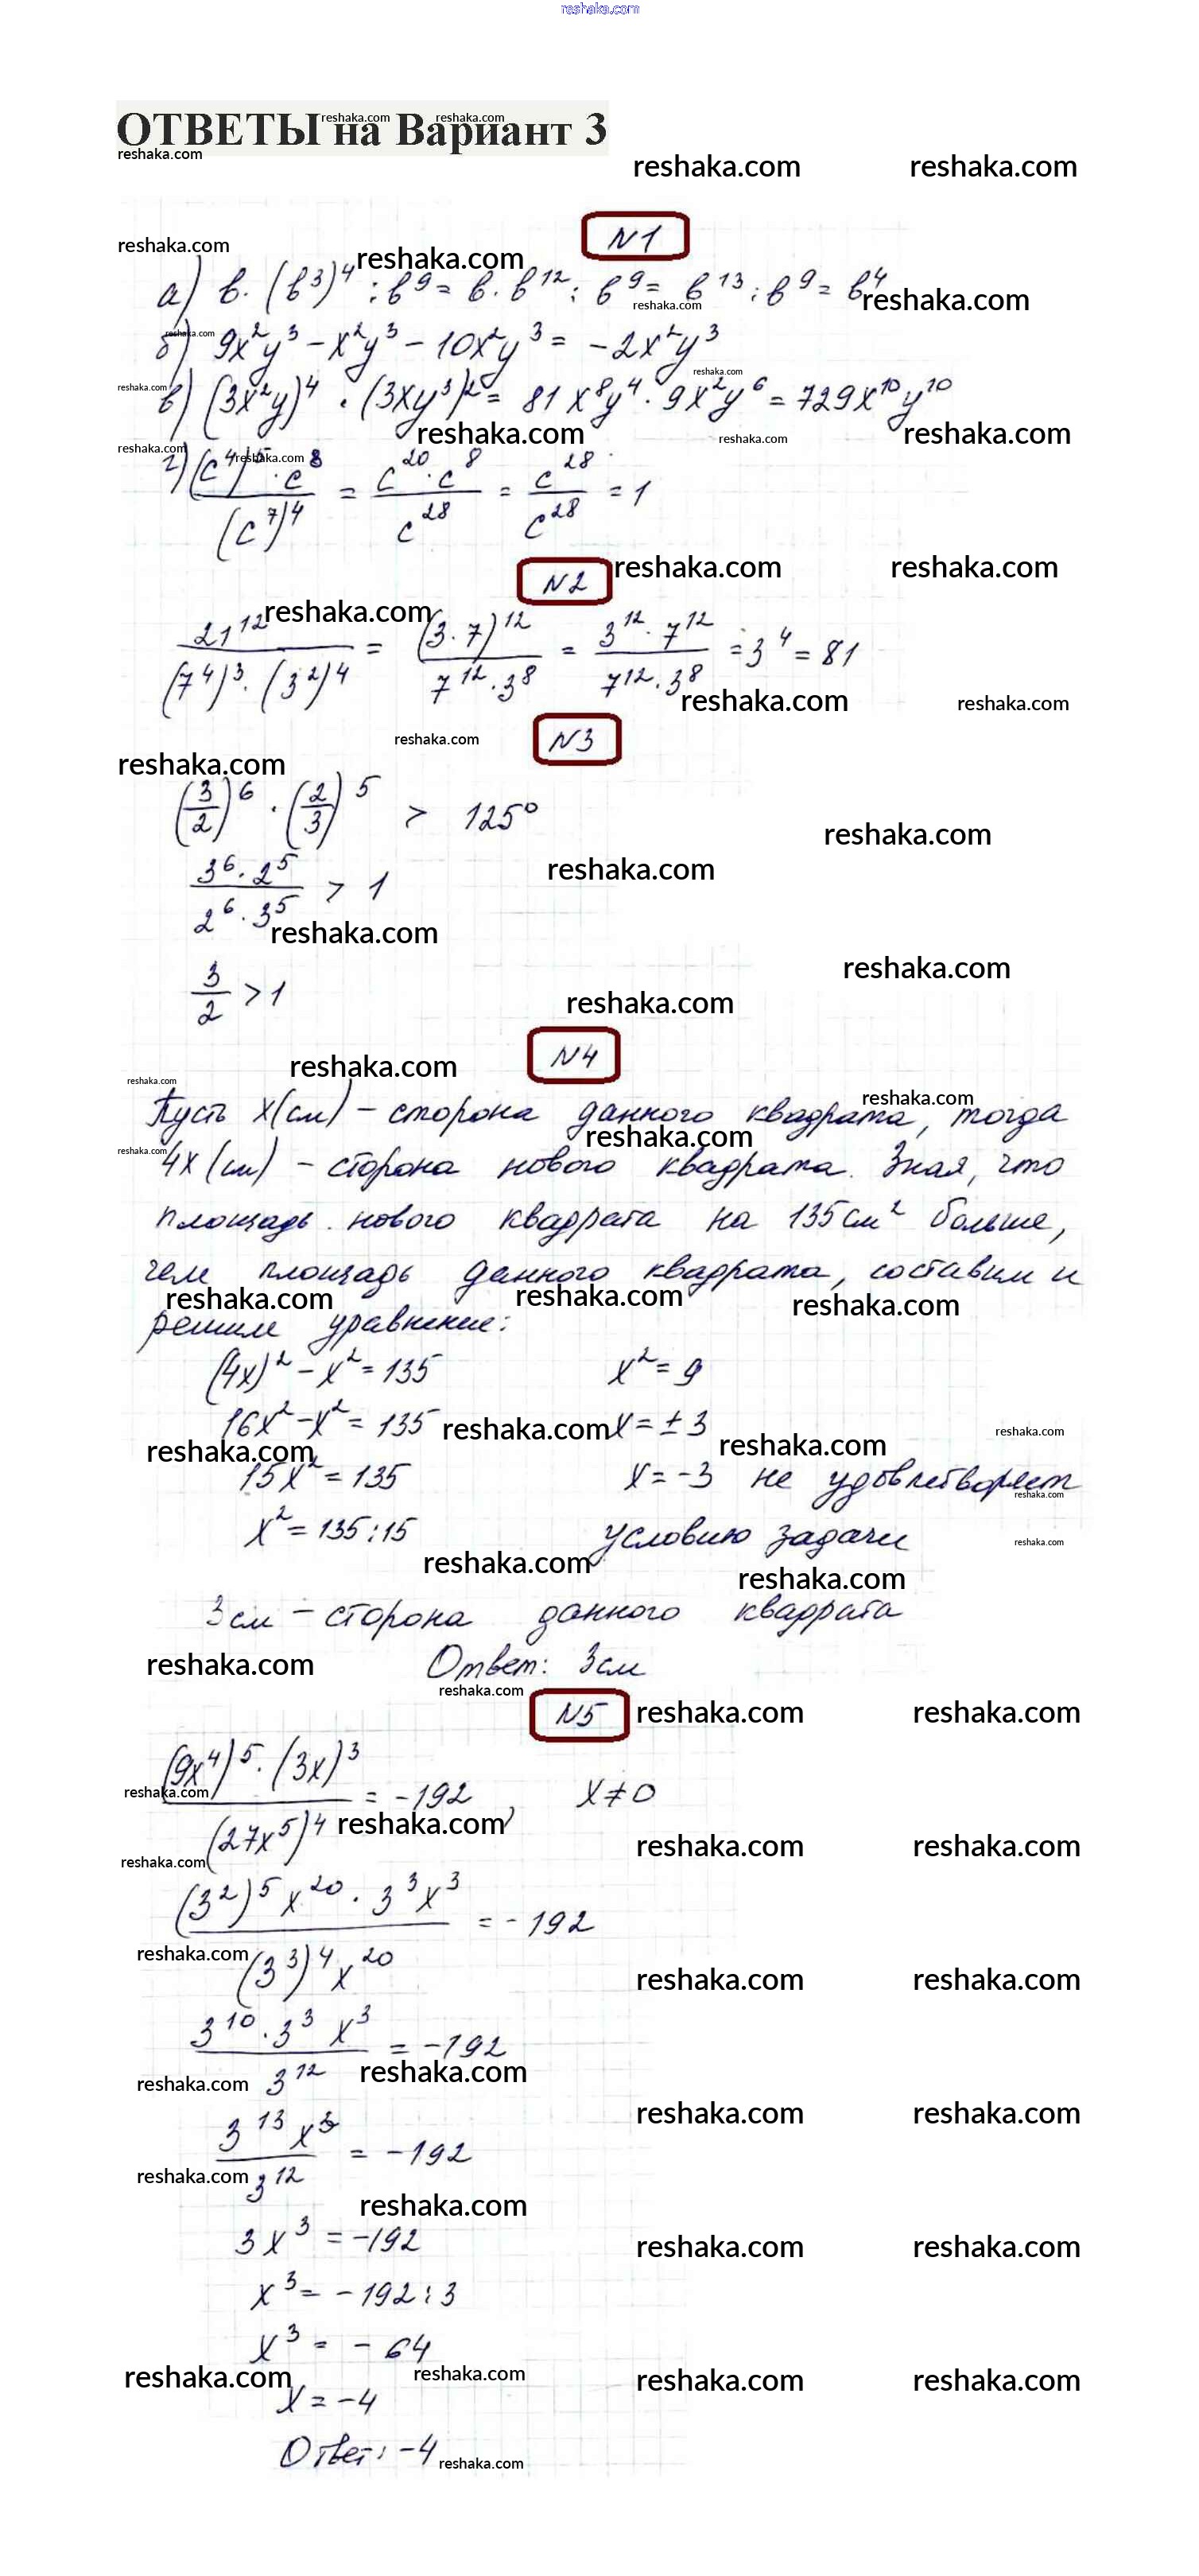 reshaka.com
ОТВЕТЫ на Вариант 3
N1
а) b·(b³)⁴ : b⁹ = b·b¹² : b⁹ = b¹³ : b⁹ = b⁴
б) 9x²y³ − x²y³ − 10x²y³ = −2x²y³
в) (3x²y)⁴ · (3xy³)² = 81x⁸y⁴ · 9x²y⁶ = 729x¹⁰y¹⁰
г) (c⁴)⁵·c⁸ / (c⁷)⁴ = c²⁰·c⁸ / c²⁸ = c²⁸ / c²⁸ = 1
N2
21¹² / (7⁴)³·(3²)⁴ = (3·7)¹² / 7¹²·3⁸ = 3¹²·7¹² / 7¹²·3⁸ = 3⁴ = 81
N3
(3/2)⁶ · (2/3)⁵ > 125⁰
3⁶·2⁵ / 2⁶·3⁵ > 1
3/2 > 1
N4
Пусть x(см) – сторона данного квадрата, тогда
4x (см) – сторона нового квадрата. Зная, что
площадь нового квадрата на 135 см² больше,
чем площадь данного квадрата, составим и
решим уравнение:
(4x)² − x² = 135
16x² − x² = 135
15x² = 135
x² = 135:15
x² = 9
x = ± 3
x = −3 не удовлетворяет
условию задачи
3 см – сторона данного квадрата
Ответ: 3 см
N5
(9x⁴)⁵·(3x)³ / (27x⁵)⁴ = −192, x ≠ 0
(3²)⁵x²⁰·3³x³ / (3³)⁴x²⁰ = −192
3¹⁰·3³x³ / 3¹² = −192
3¹³x³ / 3¹² = −192
3x³ = −192
x³ = −192:3
x³ = −64
x = −4
Ответ: −4